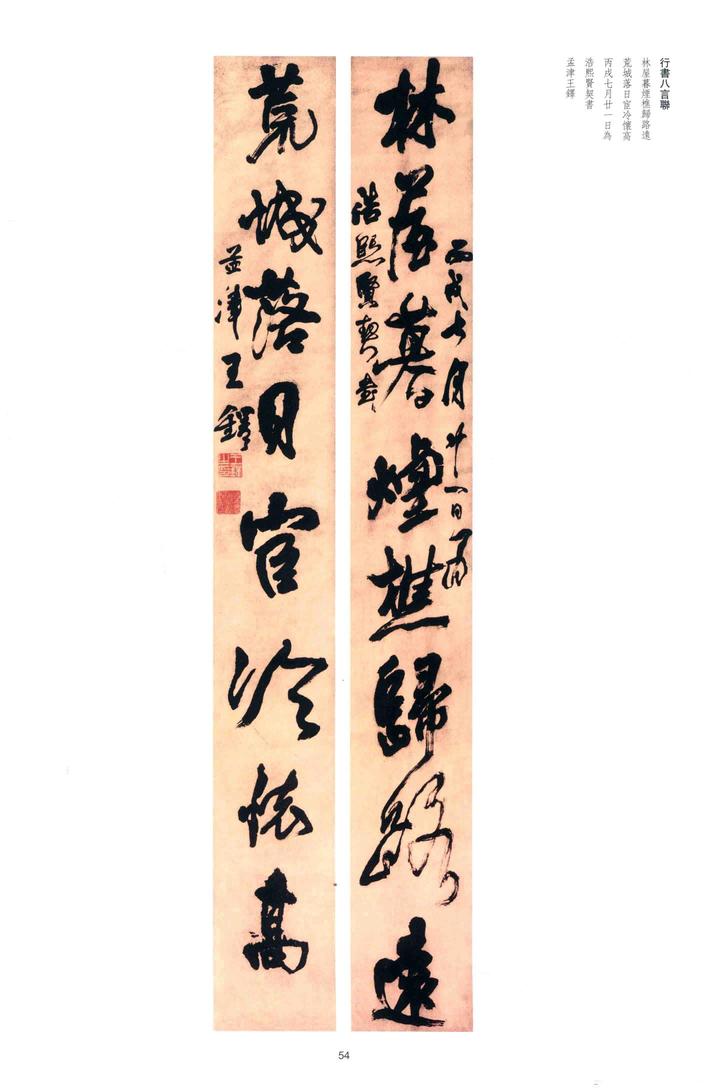 行書八言聯
林屋暮煙樵歸路遠
荒城落日宦冷懷高
丙戌七月廿一日為
浩熙賢契書
孟津王鐸
林屋暮煙樵歸路遠
丙戌七月廿一日為
浩熙賢契書
荒城落日宦冷懷高
孟津王鐸
54